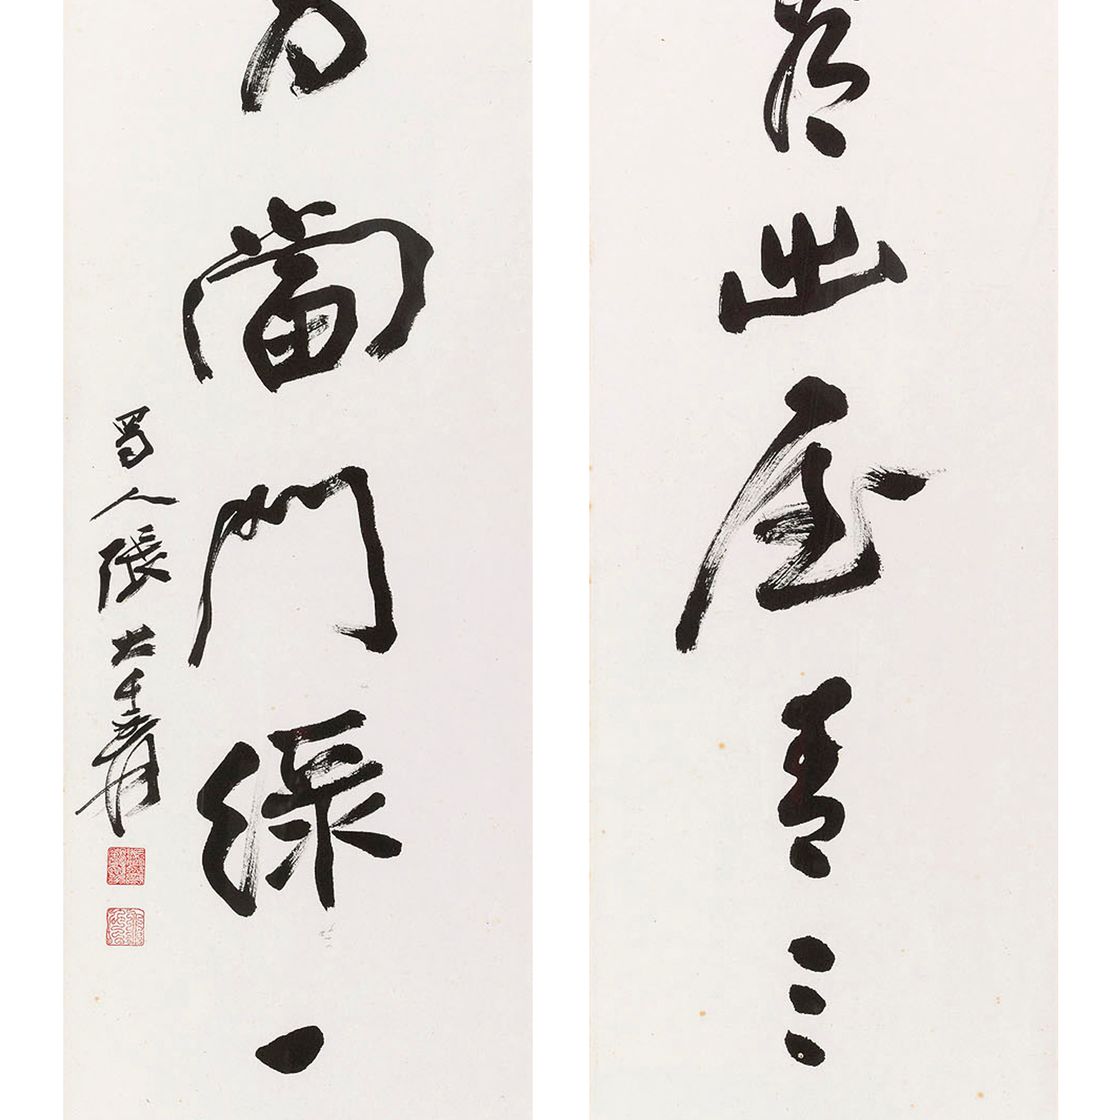 出屋青三
當門綠一
蜀人張大千爰